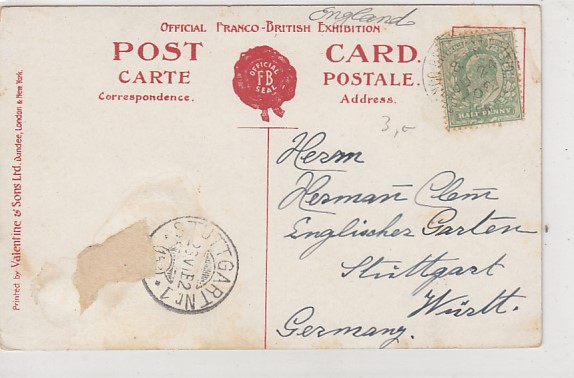 England
Official Franco-British Exhibition
POST CARD.
CARTE POSTALE.
Correspondence.
Address.
OFFICIAL
FB
SEAL
HALFPENNY
3,-
Herrn
Hermañ Clem̄
Englischer Garten
Stuttgart
Württ.
Germany.
STUTTGART Nr. 1
Printed by Valentine & Sons Ltd. Dundee, London & New York.